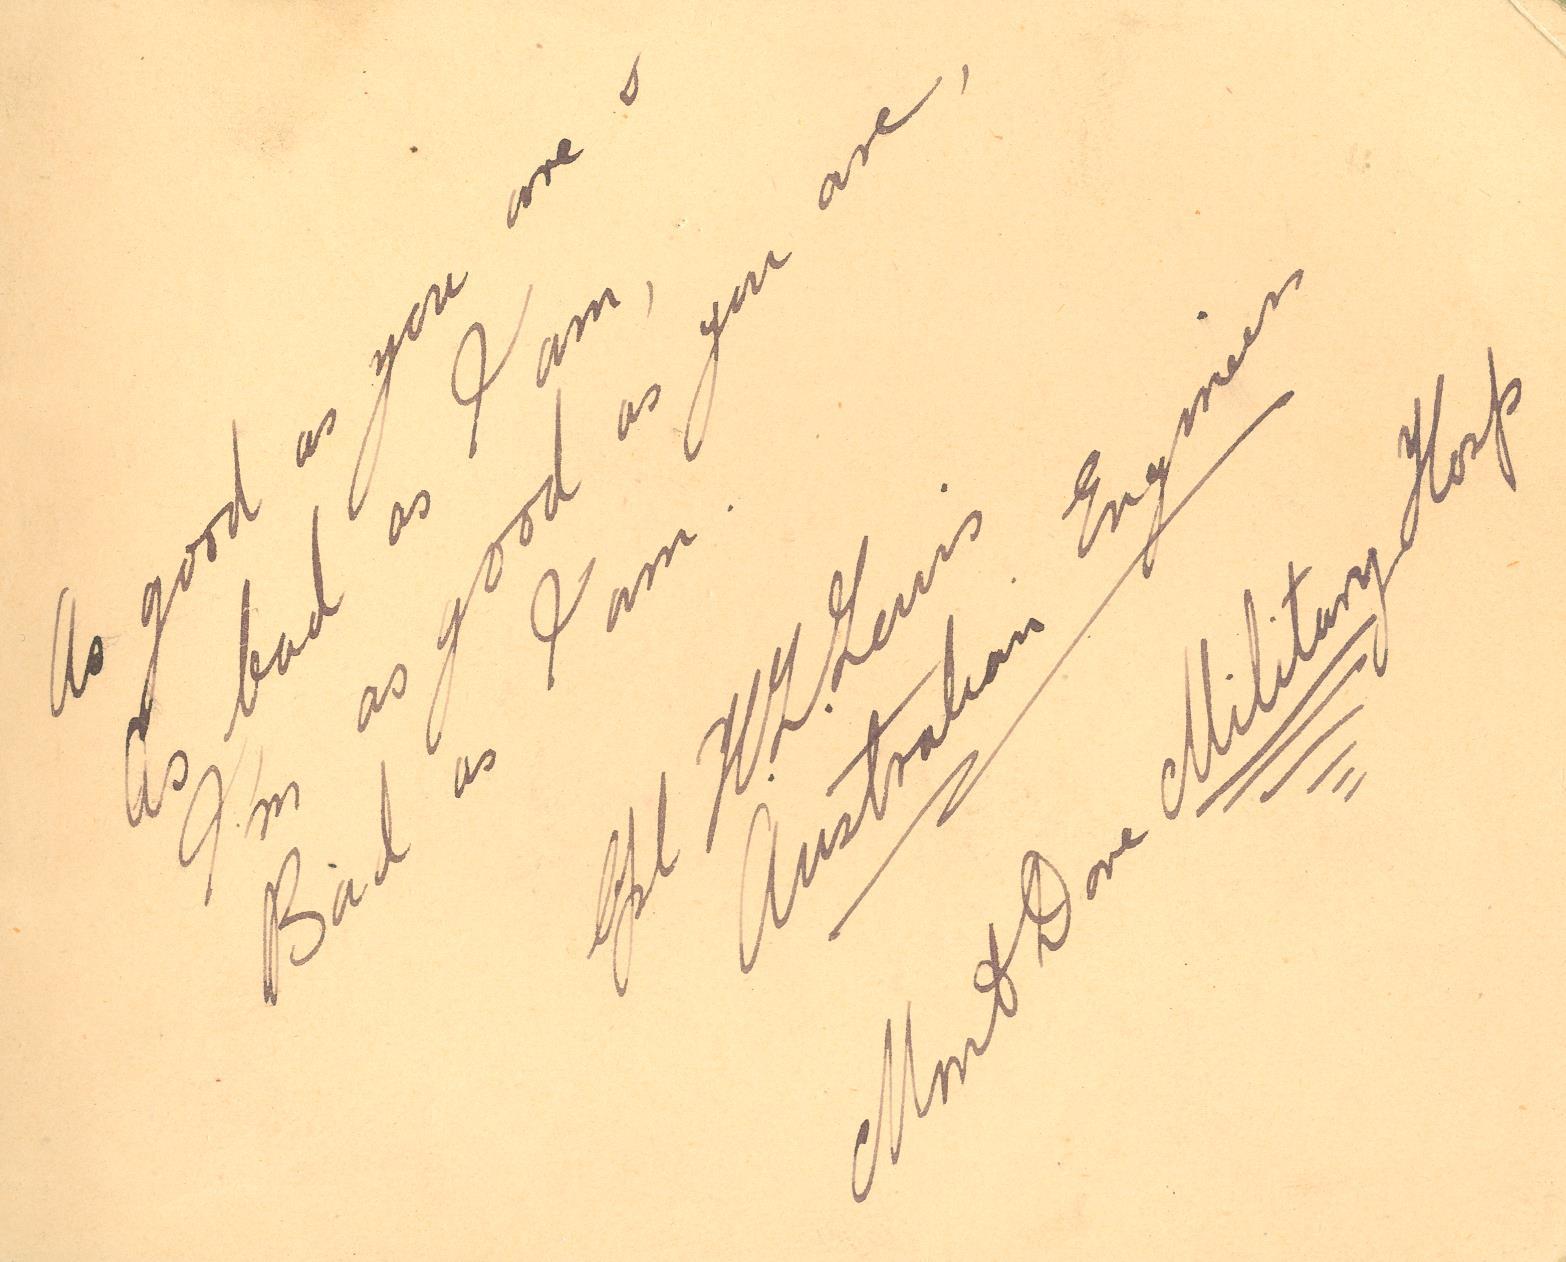 As good as you are &
As bad as I am,
I'm as good as you are,
Bad as I am.
Cpl W. L. Lewis
Australian Engineers
Mont Dore Military Hosp